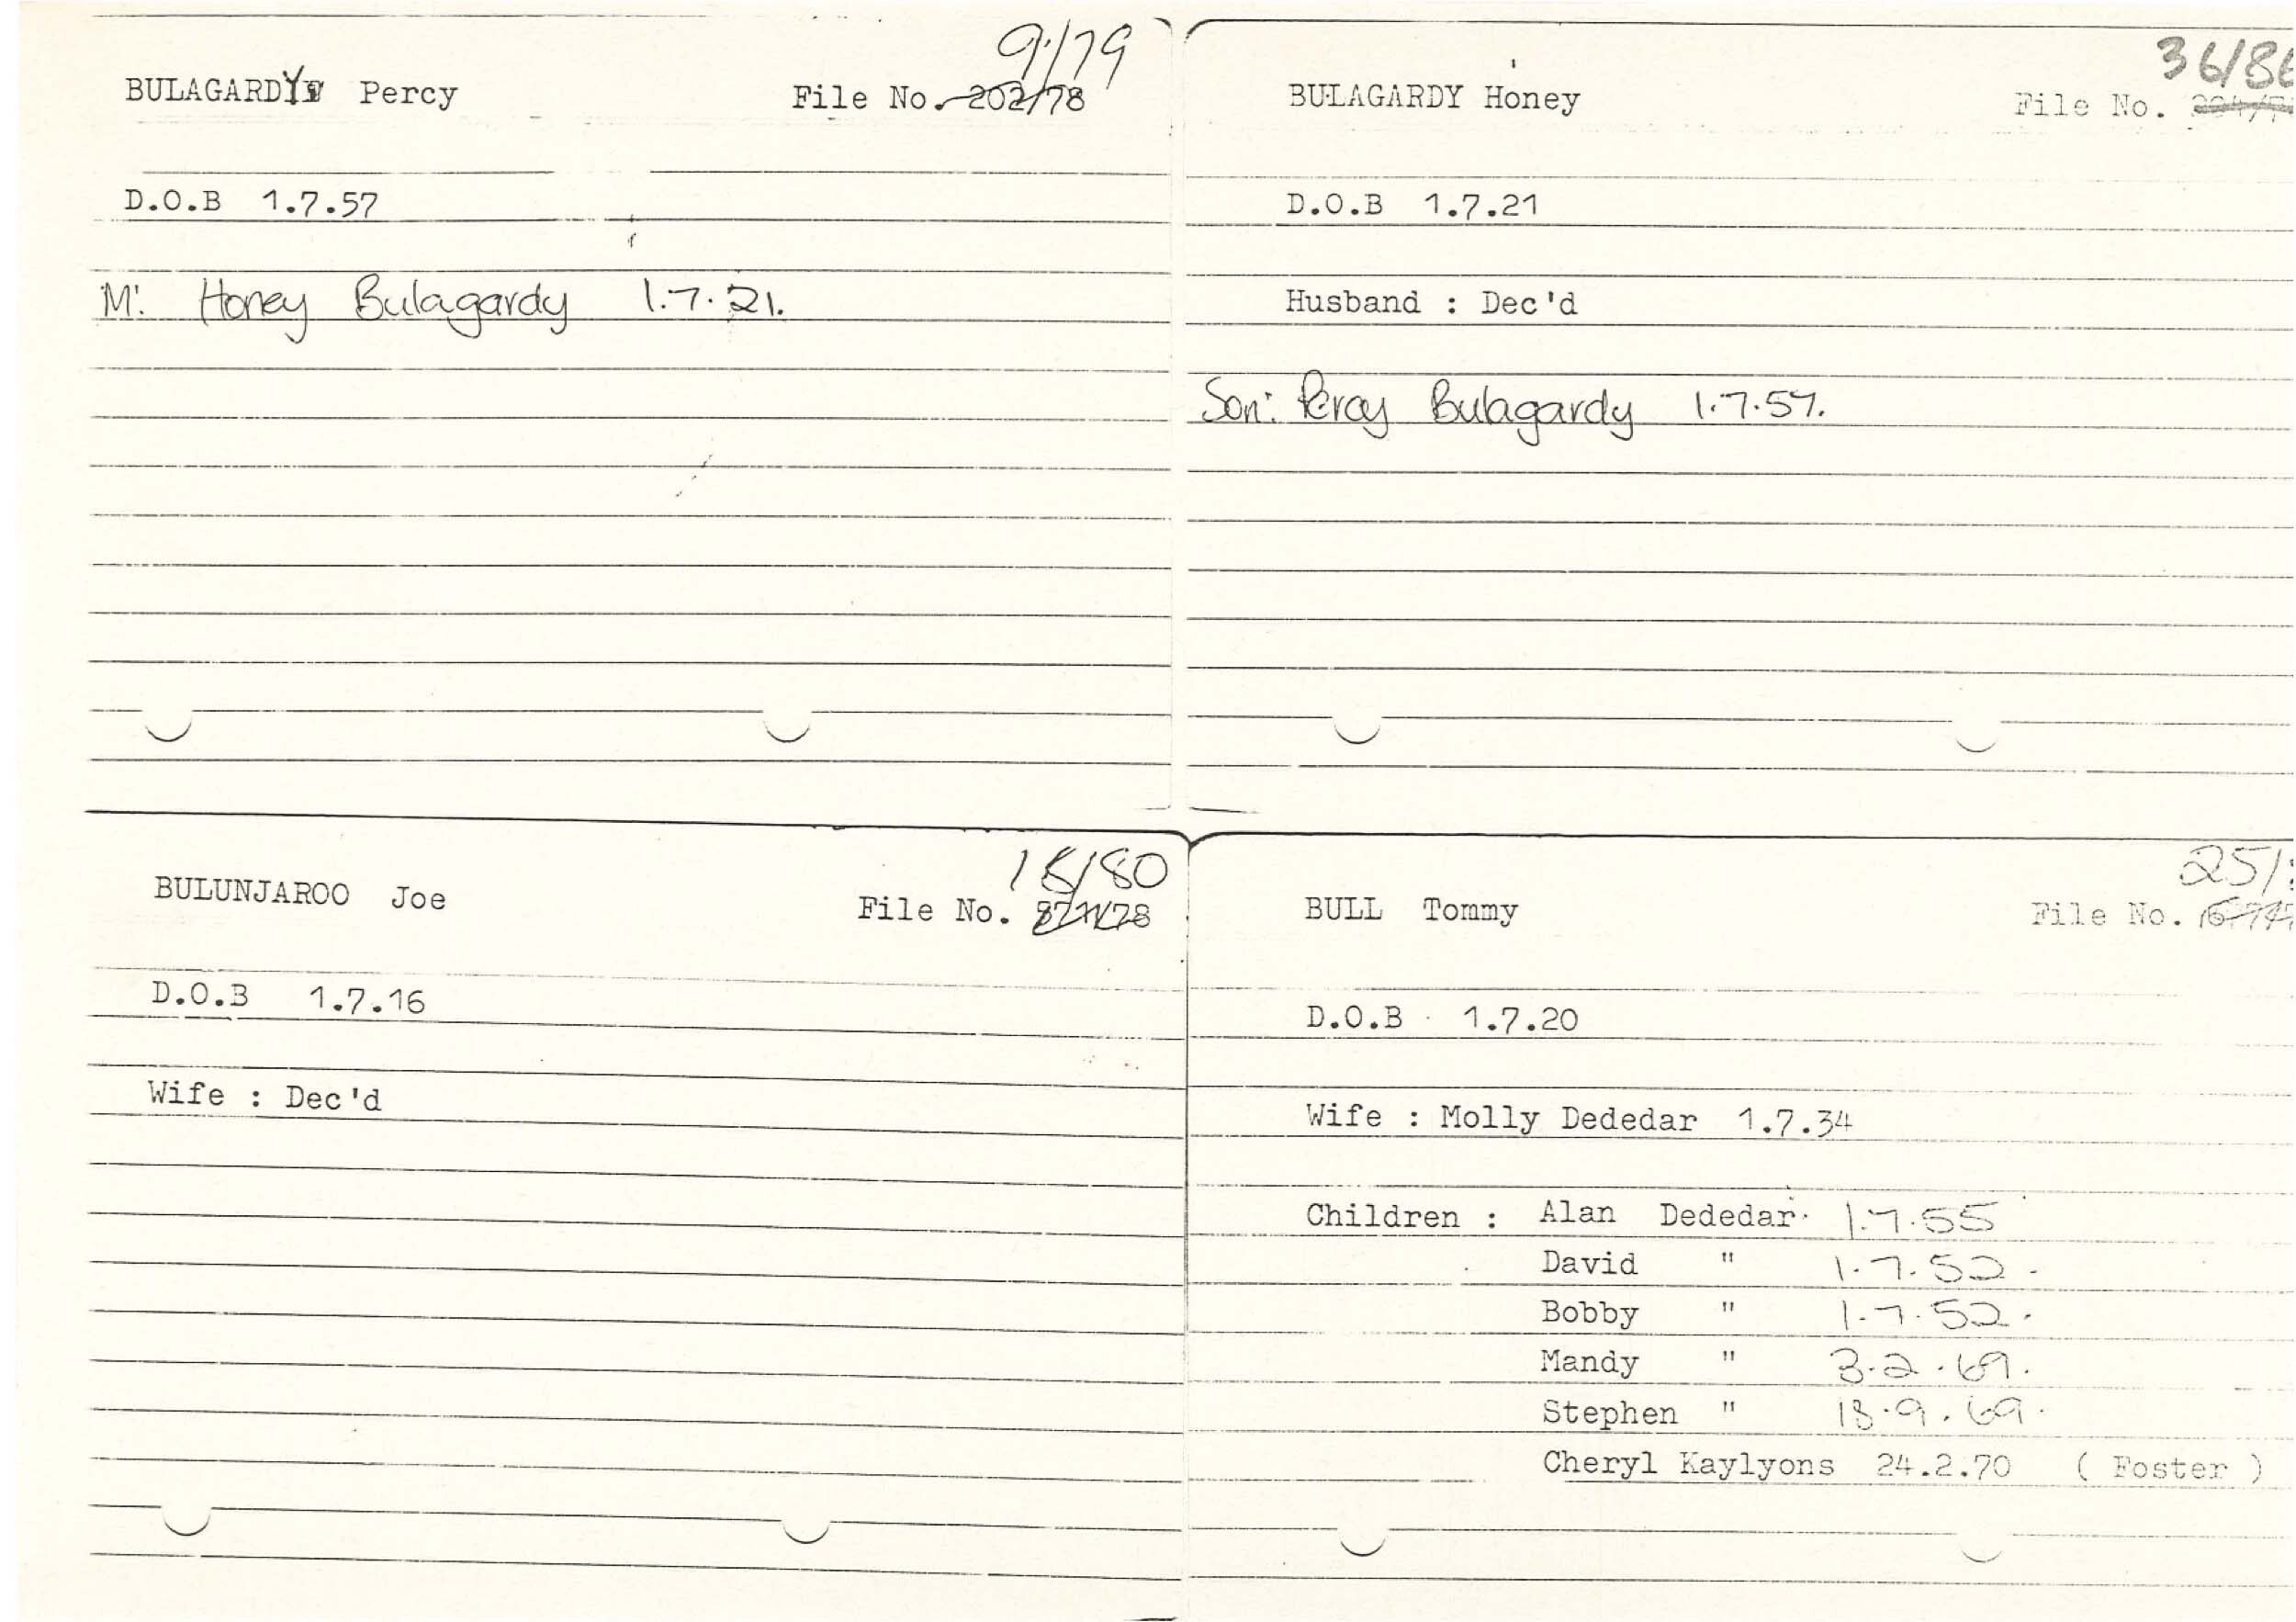 9/79
BULAGARDY Percy File No. 202/78
D.O.B 1.7.57
M: Honey Bulagardy 1.7.21.
36/86
BULAGARDY Honey File No.
D.O.B 1.7.21
Husband : Dec'd
Son: Percy Bulagardy 1.7.57.
/80
BULUNJAROO Joe File No.
D.O.B 1.7.16
Wife : Dec'd
25/
BULL Tommy File No.
D.O.B 1.7.20
Wife : Molly Dededar 1.7.34
Children : Alan Dededar 1.7.55
David " 1.7.52.
Bobby " 1.7.52.
Mandy " 3.2.69.
Stephen " 18.9.69.
Cheryl Kaylyons 24.2.70 ( Foster )